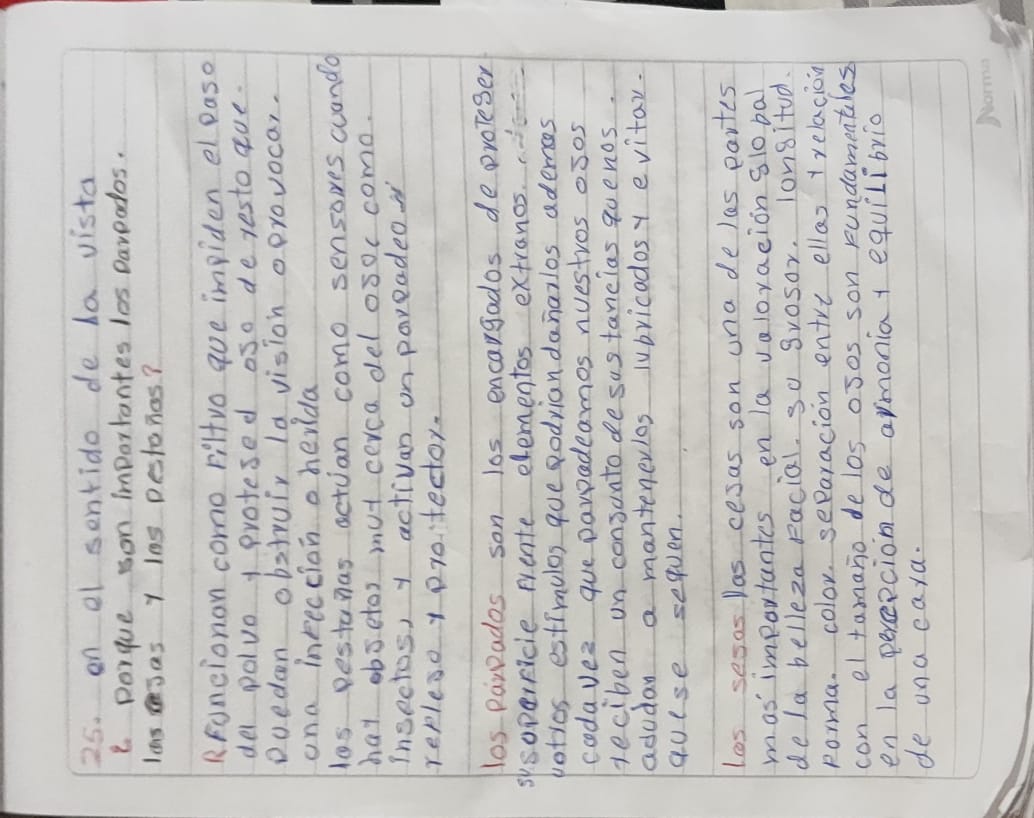 25. en el sentido de la vista
¿ porque son importantes los parpados.
las sesas y las pestañas?
R Funcionan como filtro que impiden el paso
del polvo y protesed oso de resto que.
puedan obstruir la vision o provocar.
una infeccion o herida
las pestañas actuan como sensores cuando
hay obsetos muy cerca del ose como.
insectos, y activan un parpadeo
refleso y proitector.
los parpados son los encargados de proteser
su soperficie frente elementos extranos.
votros estimulos que podrian dañarlos ademas
cada vez que parpadeamos nuestros osos
reciben un consunto de sustancias quenos.
adudan a mantenerlos lubricados y evitar.
que se sequen.
las sesas las cesas son una de las partes
mas importantes en la valoración global
de la belleza facial. su grosor. longitud.
Forma. color. separación entre ellas y relación
con el tamaño de los osos son fundamentales
en la percepcion de armonia y equilibrio
de una cara.
Norma